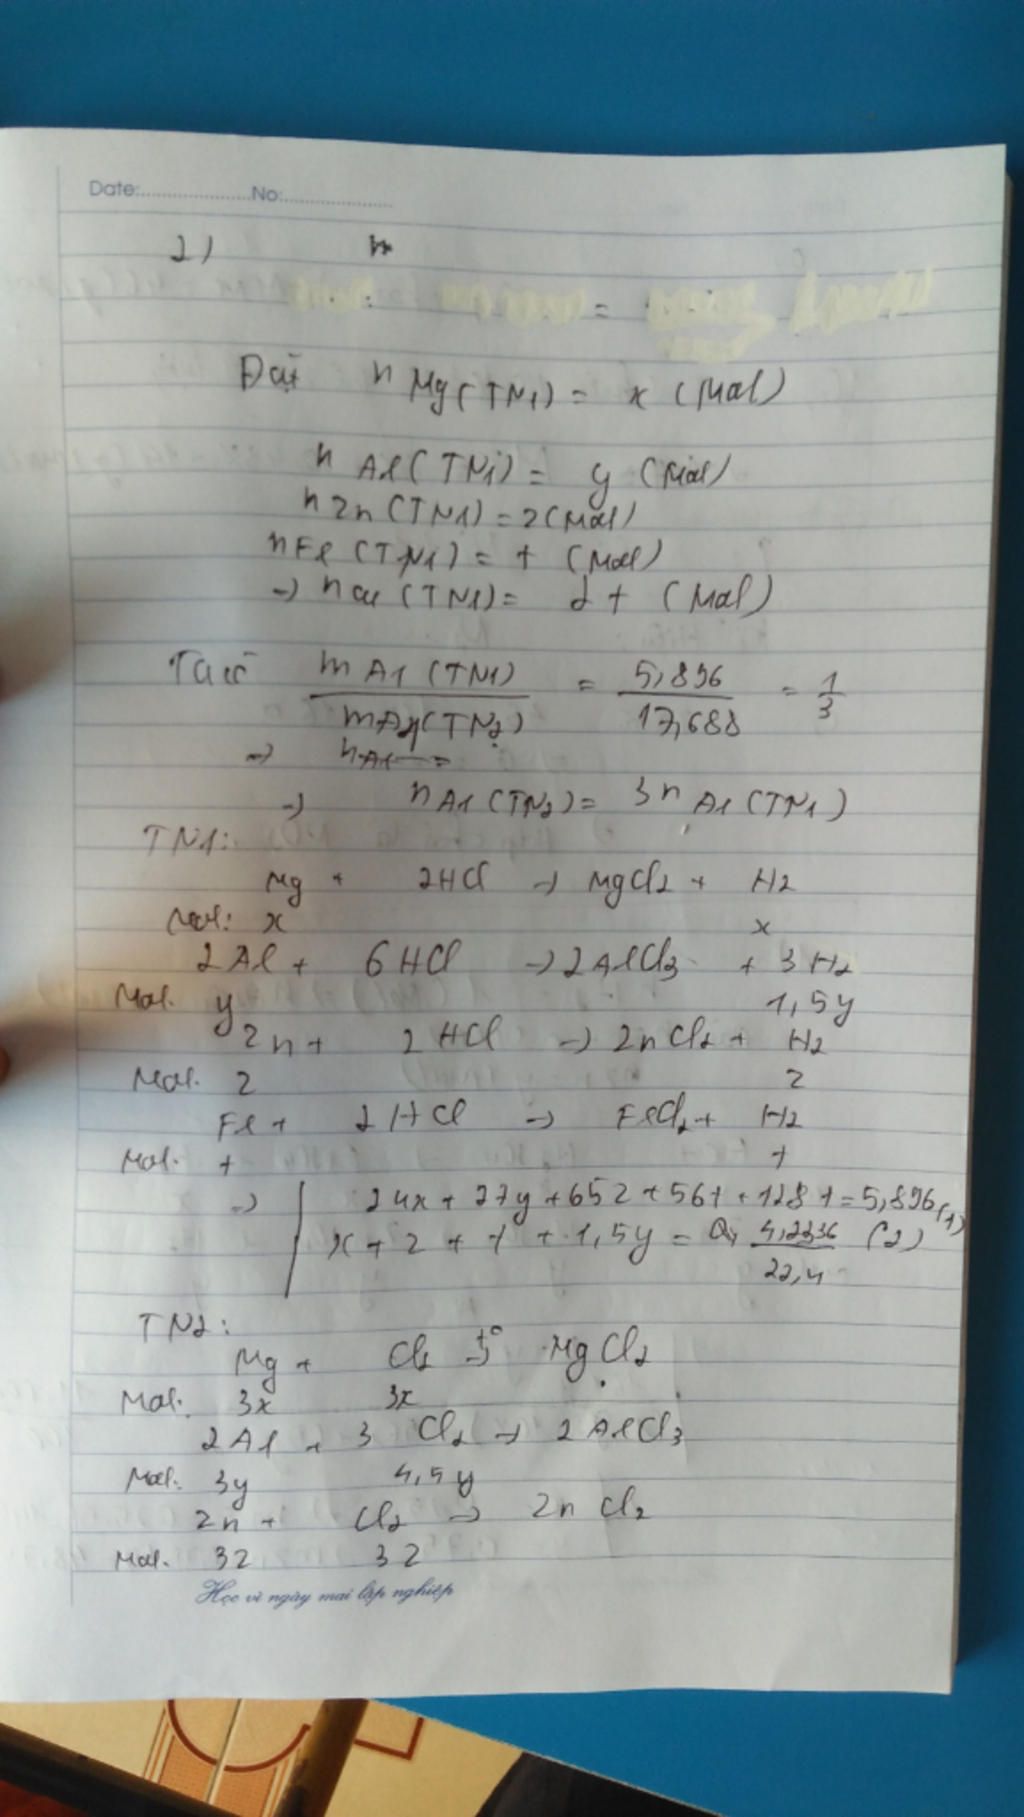 Date:..................No:..................
2)
Đặt n Mg(TN1) = x (Mol)
n Al(TN1) = y (Mol)
n Zn (TN1) = z (Mol)
n Fe (TN1) = t (Mol)
→ n Cu (TN1) = 2t (Mol)
Ta có m A1 (TN1) / m A1 (TN2) = 5,896 / 17,688 = 1/3
→ n A1 =
→ n A1 (TN2) = 3n A1 (TN1)
TN1:
Mg + 2HCl → MgCl2 + H2
Mol: x x
2Al + 6HCl → 2AlCl3 + 3H2
Mol. y 1,5y
Zn + 2HCl → ZnCl2 + H2
Mol. z z
Fe + 2HCl → FeCl2 + H2
Mol. t t
→ 24x + 27y + 65z + 56t + 128t = 5,896 (1)
x + z + t + 1,5y = 4,2336 / 22,4 (2)
TN2:
Mg + Cl2 t° → MgCl2
Mol. 3x 3x
2Al + 3Cl2 → 2AlCl3
Mol. 3y 4,5y
Zn + Cl2 → ZnCl2
Mol. 3z 3z
Học vì ngày mai lập nghiệp